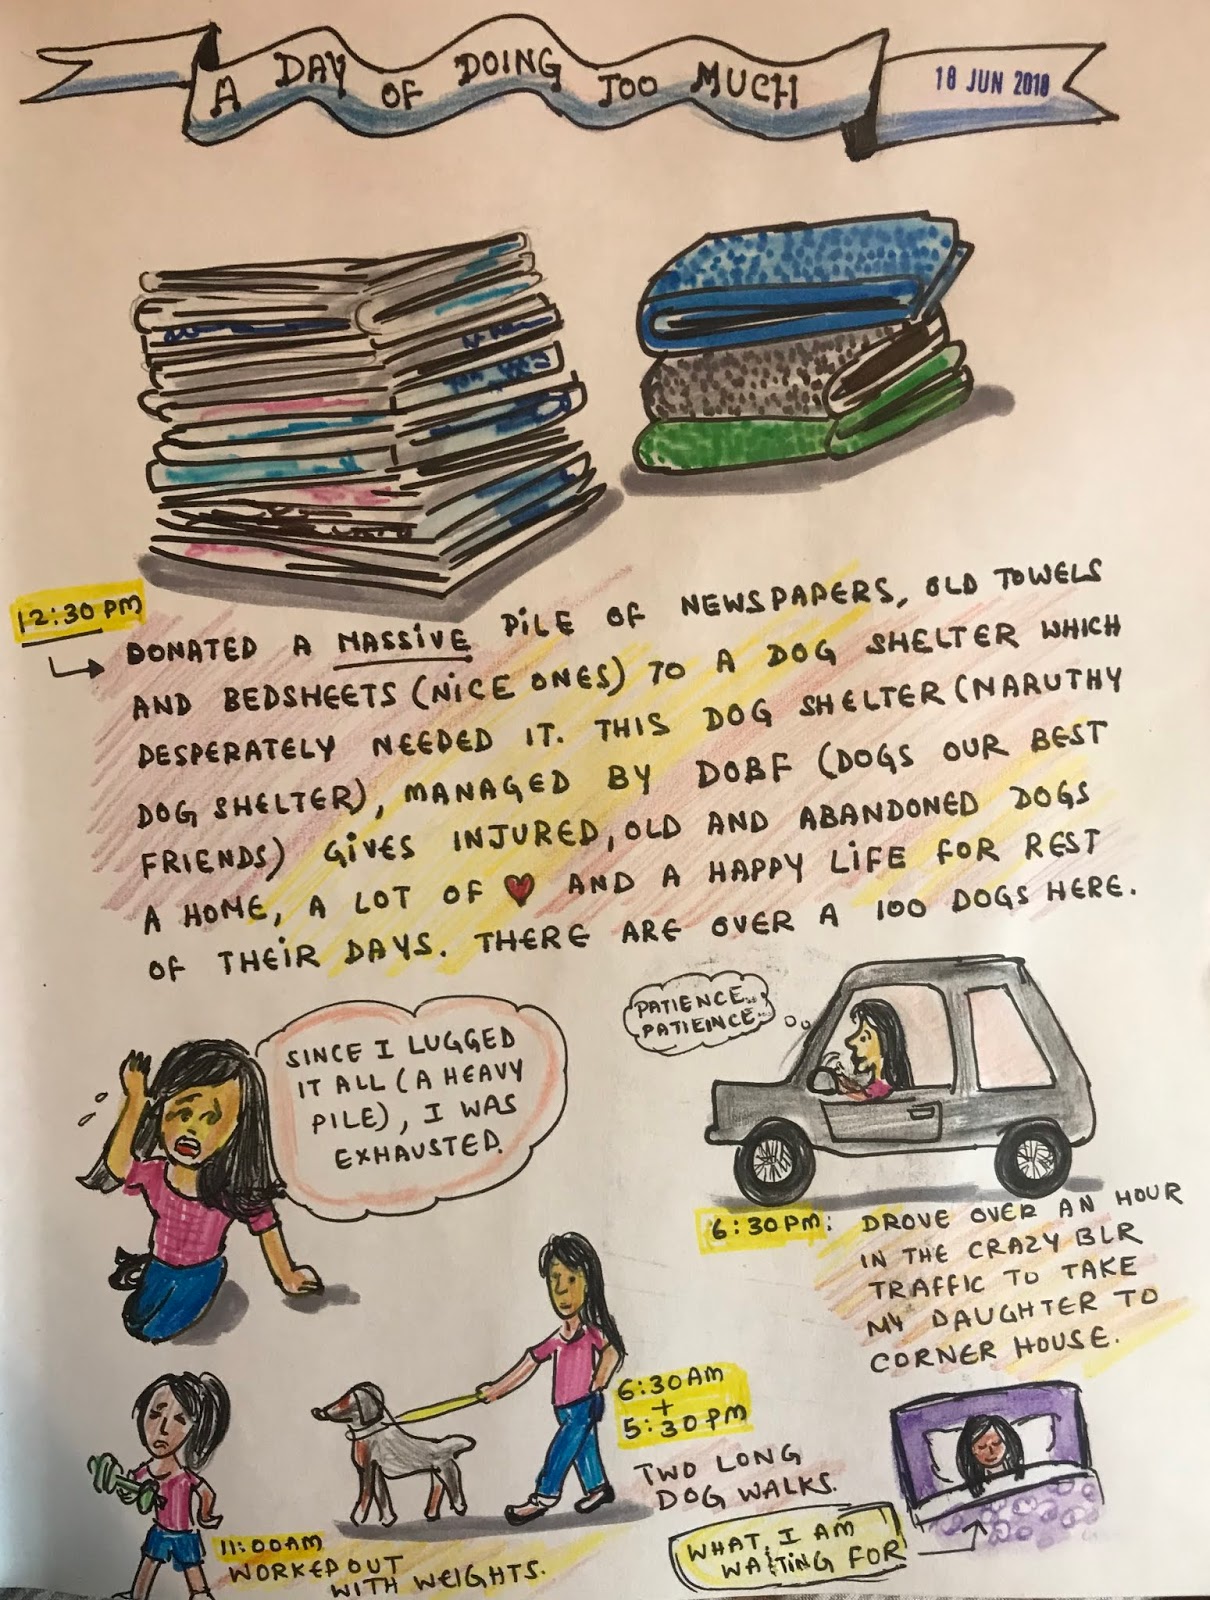 A DAY OF DOING TOO MUCH
18 JUN 2018
12:30 PM
DONATED A MASSIVE PILE OF NEWSPAPERS, OLD TOWELS
AND BEDSHEETS (NICE ONES) TO A DOG SHELTER WHICH
DESPERATELY NEEDED IT. THIS DOG SHELTER (NARUTHY
DOG SHELTER), MANAGED BY DOBF (DOGS OUR BEST
FRIENDS) GIVES INJURED, OLD AND ABANDONED DOGS
A HOME, A LOT OF ❤ AND A HAPPY LIFE FOR REST
OF THEIR DAYS. THERE ARE OVER A 100 DOGS HERE.
SINCE I LUGGED
IT ALL (A HEAVY
PILE), I WAS
EXHAUSTED.
PATIENCE..
PATIEINCE..
6:30PM: DROVE OVER AN HOUR
IN THE CRAZY BLR
TRAFFIC TO TAKE
MY DAUGHTER TO
CORNER HOUSE.
6:30AM
+
5:30PM
TWO LONG
DOG WALKS.
11:00AM
WORKED OUT
WITH WEIGHTS.
WHAT I AM
WAITING FOR